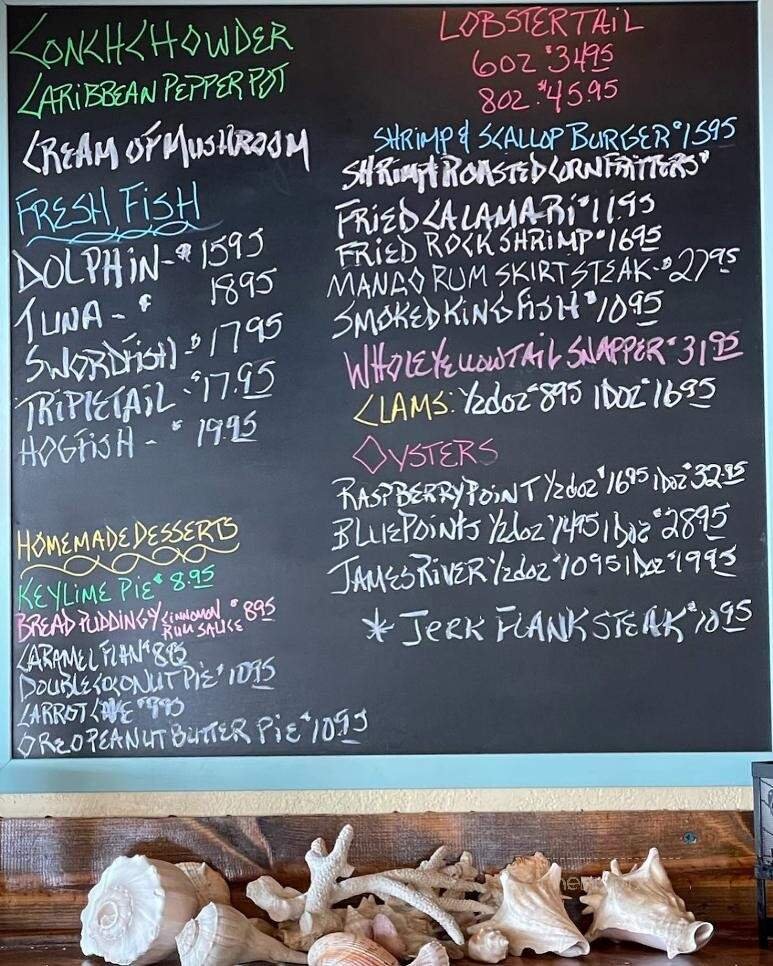 CONCH CHOWDER
CARIBBEAN PEPPER POT
CREAM OF MUSHROOM
FRESH FISH
DOLPHIN - $1595
TUNA - $ 1895
SWORDFISH - $1795
TRIPLETAIL - $17.95
HOGFISH - $ 19.95
HOMEMADE DESSERTS
KEYLIME PIE $8.95
BREAD PUDDING W/ CINNAMON RUM SAUCE $895
CARAMEL FLAN $895
DOUBLE COCONUT PIE $1095
CARROT CAKE $995
OREO PEANUT BUTTER PIE $1095
LOBSTER TAIL
6OZ $3495
8OZ. $45.95
SHRIMP & SCALLOP BURGER $1595
SHRIMP & ROASTED CORN FRITTERS
FRIED CALAMARI $11.95
FRIED ROCK SHRIMP $1695
MANGO RUM SKIRT STEAK - $2795
SMOKED KINGFISH $1095
WHOLE YELLOWTAIL SNAPPER $3195
CLAMS: 1/2 doz $895 1 DOZ $1695
OYSTERS
RASPBERRY POINT 1/2 doz $1695 1 DOZ $32.95
BLUE POINTS 1/2 doz $1495 1 Doz $2895
JAMES RIVER 1/2 doz $1095 1 Doz $1995
* JERK FLANK STEAK $1095